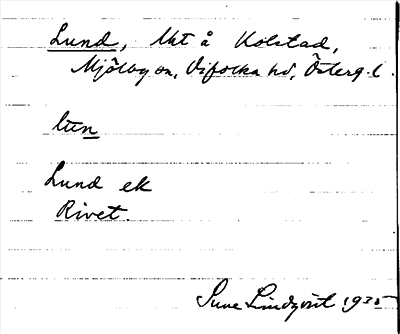 Lund, Uht å Kolstad,
Mjölby sn, Vifolka hd, Österg. l.
lun
Lund ek
Rivet.
Sune Lindqvist 1935